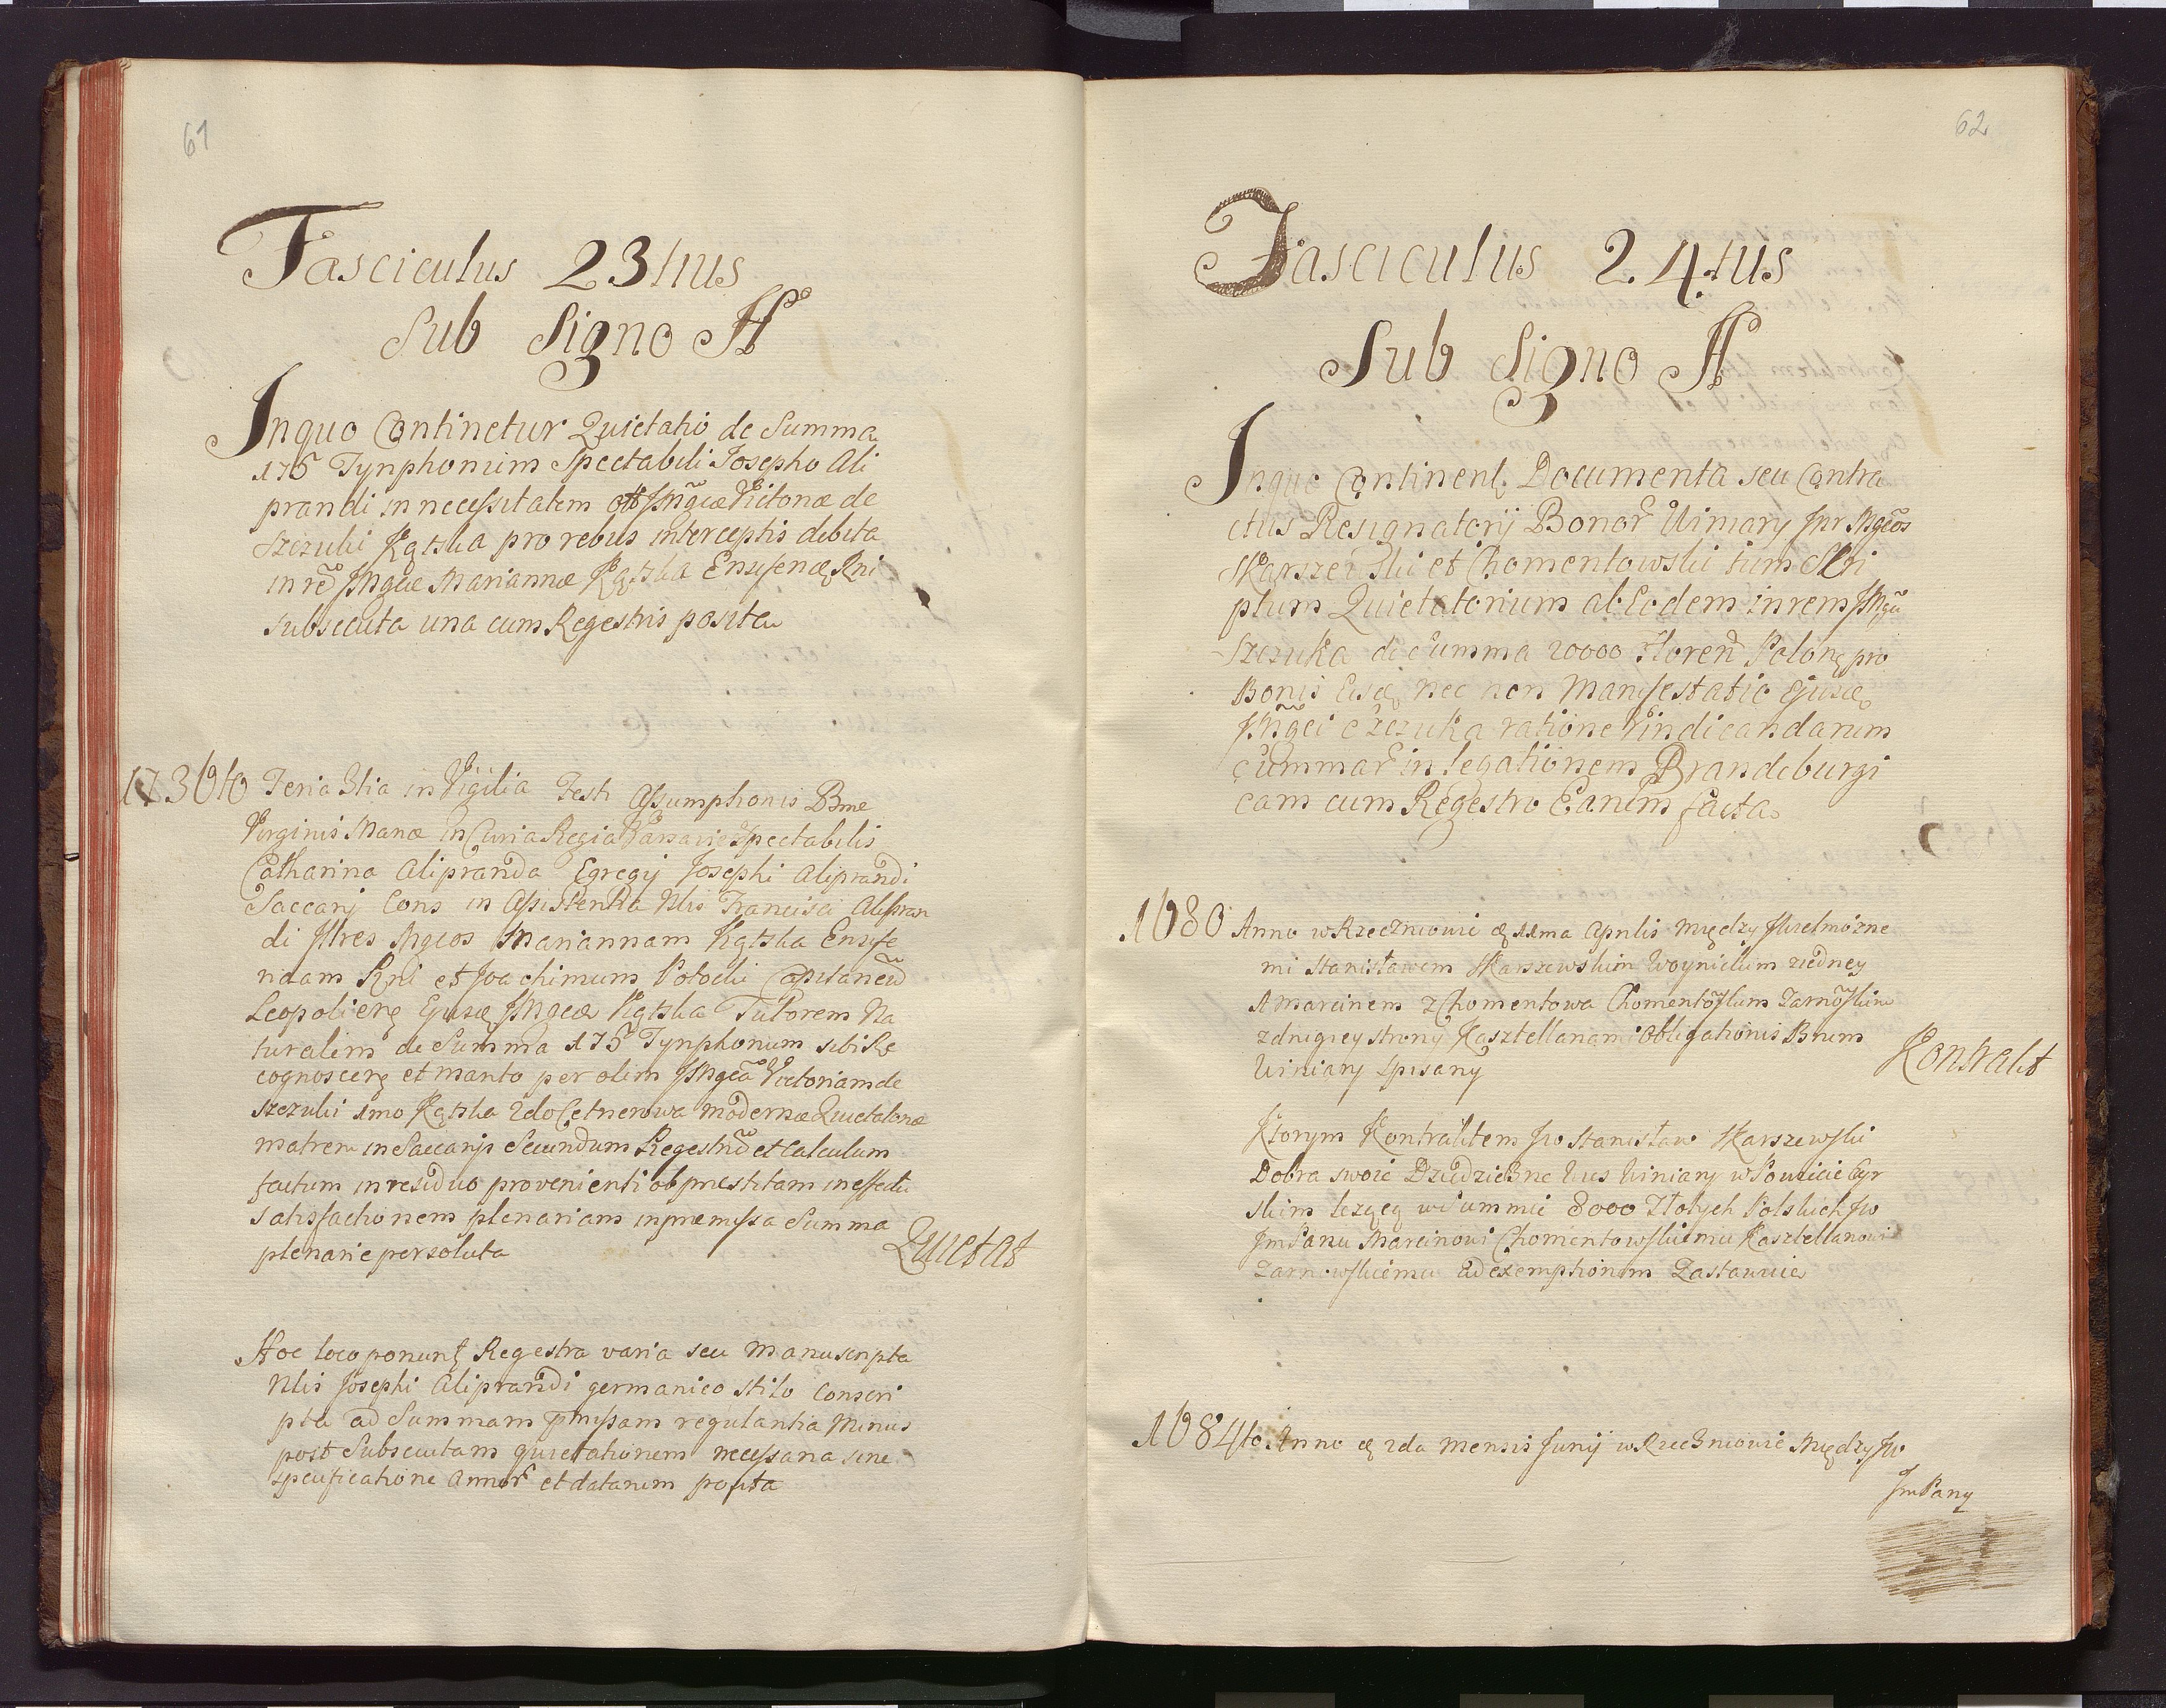 61
Fasciculus 23tius
Sub Signo H
Inquo Continetur Quietatio de Summa
175 Tynphonum Spectabili Josepho Ali
prandi in necessitatem Victoriæ de
Szczuki Kątska pro rebus interceptis debita
in Mariannæ Kątska Ensifenæ Rni
subsecuta una cum Regestris posita
1736to Feria 3tia in Vigilia Festi Assumptionis Bme
Virginis Mariæ in Curia Regia Varsavie Spectabilis
Catharina Aliprandã Egregij Josephi Aliprandi
Saccarj Cons in Assistentia Nlis Francisci Alipran
di Jllres Mgcos Mariannam Kątska Ensife
ndam Rni et Joachimum Potocki Capitaneũ
Leopoliens Kątska Tutorem Na
turalem de Summa 175 Tynphonum sibi Re
cognoscens et manto per olim Victoriam de
Szczuki 1mo Kątska 2do Cetnerowa modernæ Quietatoriæ
matrem in Saccarijs Secundum Regestrũ et Calculum
factum in residuo provenienti ob præstitam in effectu
satisfactionem plenariam in præmissa Summa
plenarie persoluta
Quietat
Hoc loco ponunt Regestra varia seu Manuscripta
Nlis Josephi Aliprandi germanico stilo Conscri
pta ad Summam pmissam regulantia Minus
post Subsecutam quietationem necessaria sine
specificatione Annor et datarum posita
62
Fasciculus 24tus
Sub Signo H
Inquo Continent Documenta seu Contra
ctus Resignatorij Bonor Winiary Mgcos
Skarszewski et Chomentowski tum Scri
ptum Quietatorium ab Eodem in rem
Szczuka de Summa 20000 Floren Polon pro
Bonis nec non Manifestatio
Szczuka ratione Vindicandarum
Summar in legationem Brandeburgi
cam cum Regestro Earum facta
1680 Anno w Krzeczniowie 11ma Aprilis między Jwielmożne
mi Stanisławem Skarszewskim Woynickim ziedney
A Marcinem z Chomentowa Chomentoskim Zarnoskim
zdrugiey strony Kasztellanami Obligationis Bnum
Winiary spisany
Kontrakt
Ktorym Kontraktem Jw Stanisław Skarszewski
Dobra swoie Dziedziczne Wies Winiary w Powiecie Cyr
skim lezącą w Summie 8000 Złotych Polskich Jw
JmPanu Marcinowi Chomentowskiemu Kasztellanowi
Zarnowskiemu ad exemptionem Zastawuie
1684to Anno 2da mensis Junij w Krzeczniowie Między Jw
JmPany